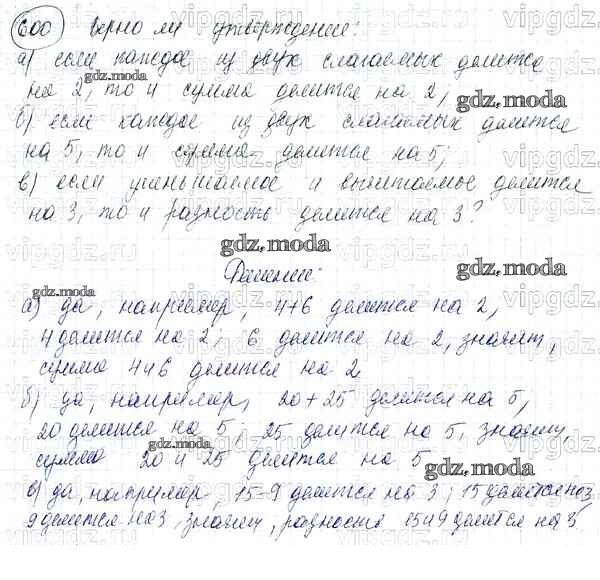 600 верно ли утверждение:
а) если каждое из двух слагаемых делится
на 2, то и сумма делится на 2,
б) если каждое из двух слагаемых делится
на 5, то и сумма делится на 5,
в) если уменьшаемое и вычитаемые делится
на 3, то и разность делится на 3?
Решение:
а) да, например, 4+6 делится на 2,
4 делится на 2, 6 делится на 2, значит,
сумма 4 и 6 делится на 2
б) да, например, 20+25 делится на 5,
20 делится на 5, 25 делится на 5, значит,
сумма 20 и 25 делится на 5
в) да, например, 15-9 делится на 3, 15 делится на 3,
9 делится на 3, значит, разность 15 и 9 делится на 3
gdz.moda
gdz.moda
gdz.moda
gdz.moda
gdz.moda
gdz.moda
gdz.moda
vipgdz.ru